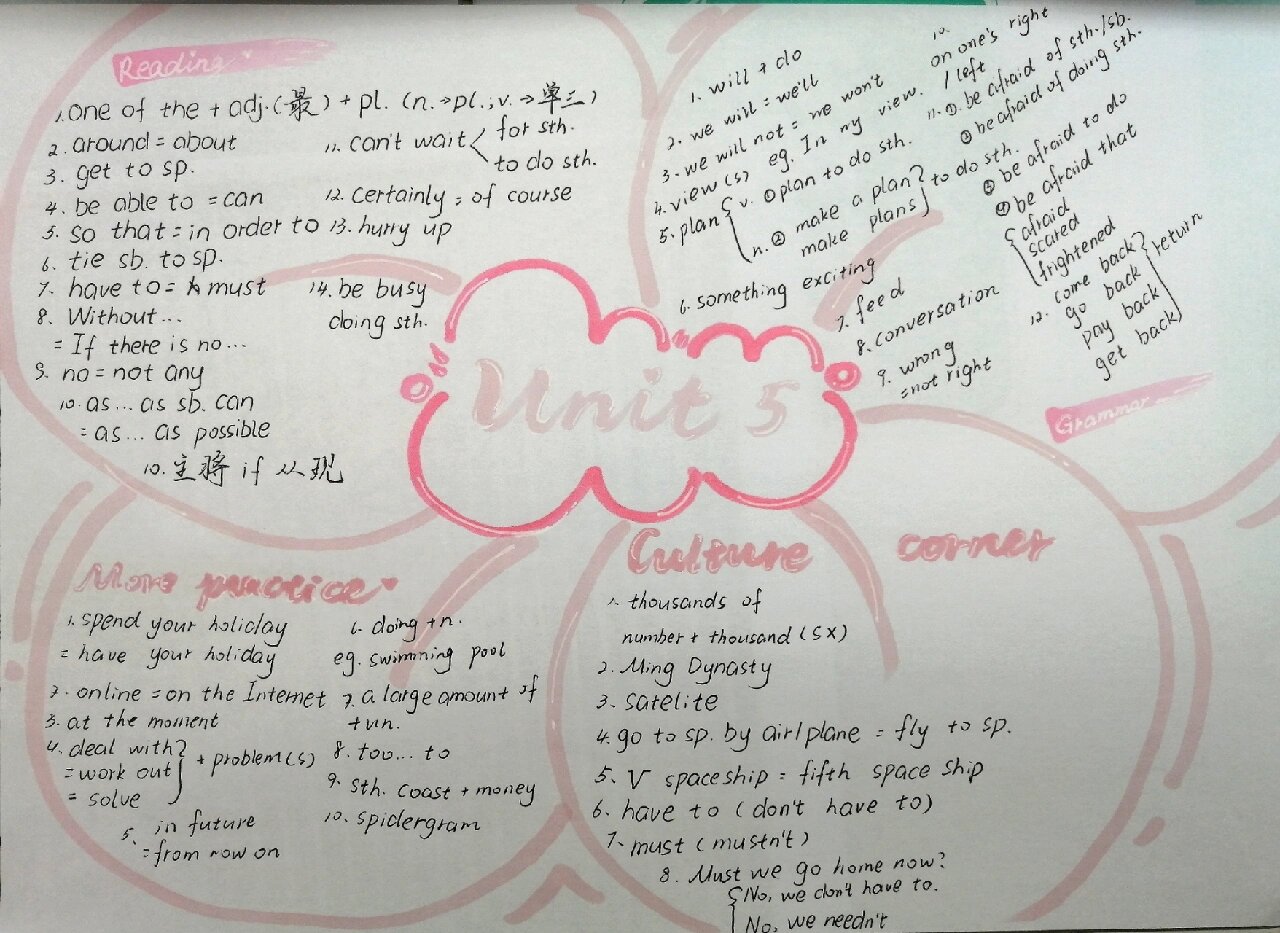 Reading
1. one of the + adj.(最) + pl. (n.→pl.; v.→单三)
2. around = about
3. get to sp.
4. be able to = can
5. so that = in order to
6. tie sb. to sp.
7. have to = must
8. Without...
= If there is no...
9. no = not any
10. as... as sb. can
= as... as possible
10. 主将 if 从现
11. can't wait
for sth.
to do sth.
12. certainly = of course
13. hurry up
14. be busy
doing sth.
1. will + do
2. we will = we'll
3. we will not = we won't
4. view(s) eg. In my view.
5. plan
v. ①plan to do sth.
n. ② make a plan
make plans
to do sth.
6. something exciting
7. feed
8. conversation
9. wrong
= not right
10.
on one's right
/ left
11. ①. be afraid of sth./sb.
② be afraid of doing sth.
③ be afraid to do
④ be afraid that
afraid
scared
frightened
12. come back
go back
pay back
get back
return
Grammar
Unit 5
More practice
1. spend your holiday
= have your holiday
2. online = on the Internet
3. at the moment
4. deal with
= work out
= solve
+ problem(s)
5. in future
= from now on
6. doing + n.
eg. swimming pool
7. a large amount of
+ un.
8. too... to
9. sth. coast + money
10. spidergram
Culture corner
1. thousands of
number + thousand (sx)
2. Ming Dynasty
3. satelite
4. go to sp. by air/plane = fly to sp.
5. V spaceship = fifth space ship
6. have to (don't have to)
7. must (mustn't)
8. Must we go home now?
No, we don't have to.
No, we needn't